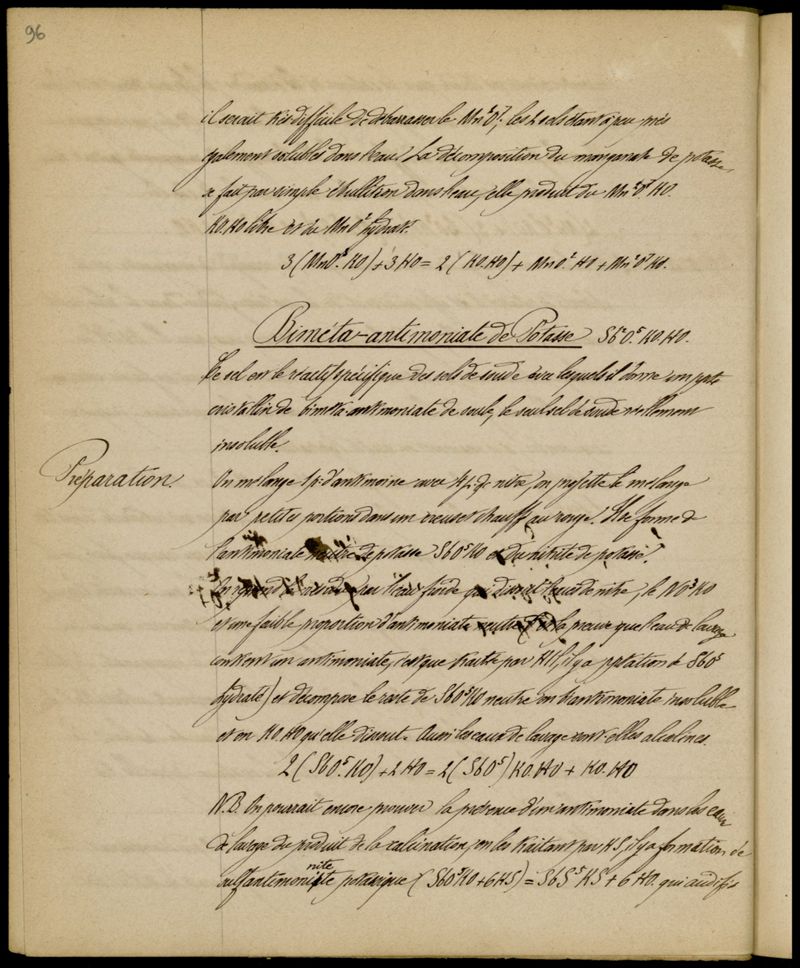 96
il serait très difficile de débarrasser le Mn²O⁷; les 2 sels étant à peu près
également solubles dans l'eau. La décomposition du manganate de potasse
se fait par simple ébullition dans l'eau, elle produit du Mn²O⁷ KO.
KO.HO libre et du MnO² hydraté.
3 (MnO³. KO) + 3 HO = 2 (KO.HO) + MnO². HO + Mn²O⁷ KO.
Biméta-antimoniate de Potasse SbO⁵. KO. HO.
Ce sel est le réactif spécifique des sels de soude avec lesquels il donne un ppté
cristallin de biméta-antimoniate de soude, le seul sel de soude réellement
insoluble.
Préparation.
On mélange 1p. d'antimoine avec 4p. de nitre, on projette le mélange
par petites portions dans un creuset chauffé au rouge. Il se forme de
l'antimoniate neutre de potasse SbO⁵KO et du nitrite de potasse.
On reprend le résidu par l'eau froide qui dissout l'excès de nitre, le NO³KO
et une faible proportion d'antimoniate neutre la preuve que l'eau de lavage
contient un antimoniate, c'est que traité par HCl, il y a pptation de SbO⁵
hydraté) et décompose le reste de SbO⁵KO neutre en biantimoniate insoluble
et en KO.HO qu'elle dissout. Aussi les eaux de lavage sont-elles alcalines.
2 (SbO⁵. KO) + 2 HO = 2 (SbO⁵) KO.HO + KO.HO
N.B. On pourrait encore prouver la présence d'un antimoniate dans les eaux
de lavage du produit de la calcination, en les traitant par HS, il y a formation de
sulfantimonite potassique (SbO⁵KO + 6HS) = SbS⁵KS + 6 HO. qui acidifié